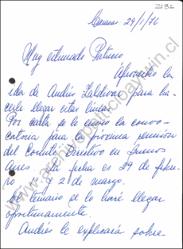 Caracas 29/1/76
Muy estimado Patricio
Aprovecho la
ida de Andrés Zaldívar para ha-
cerle llegar estas líneas.
Por carta se le envió la convo-
catoria para la próxima reunión
del Comité Directivo en
La fecha es 29 de febre-
ro a 2 de marzo.
El temario se lo haré llegar
oportunamente.
Andrés le explicará sobre